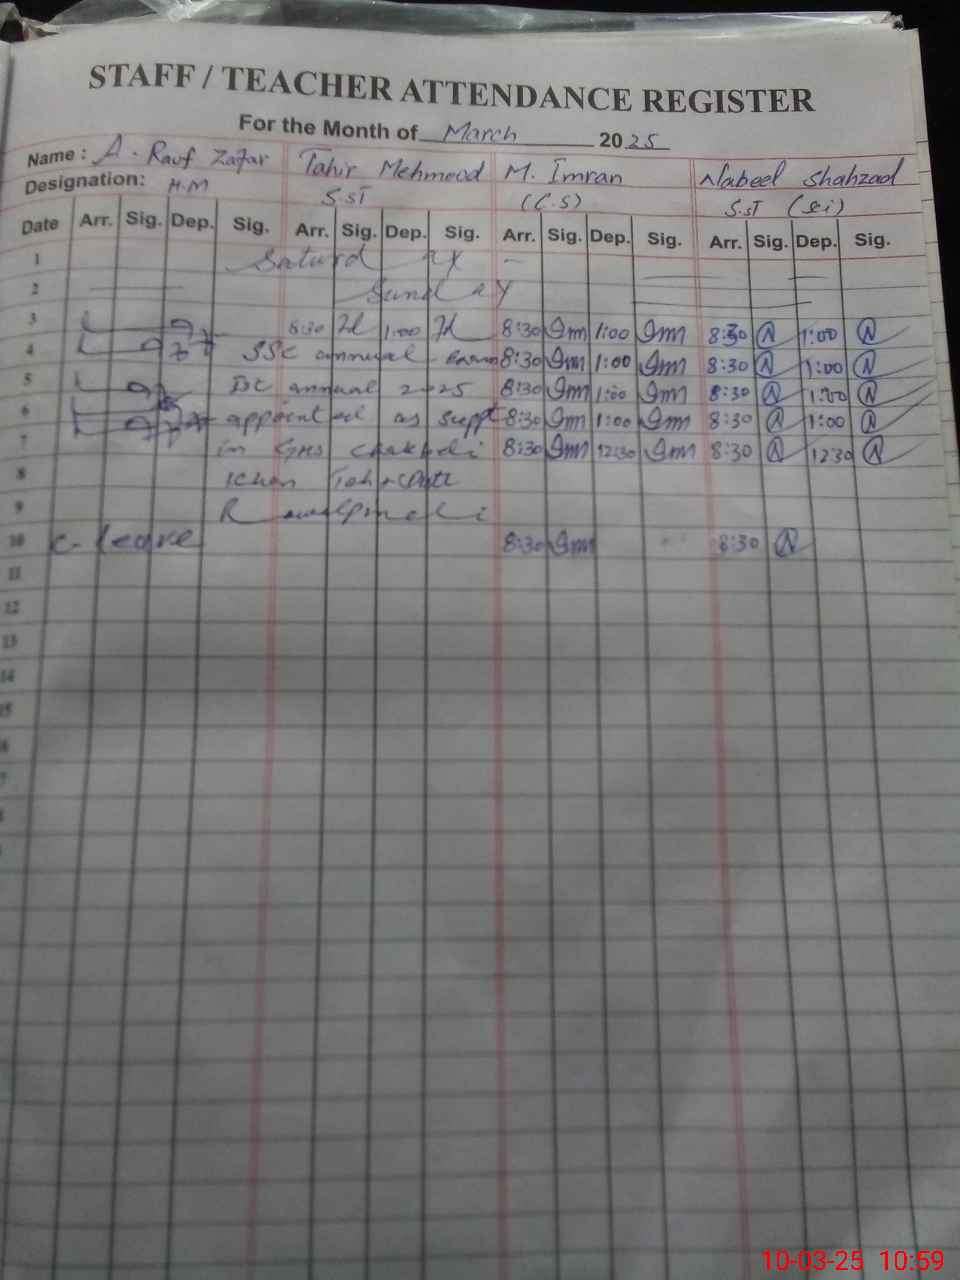 STAFF / TEACHER ATTENDANCE REGISTER
For the Month of March 2025
Name : A. Rauf Zafar Tahir Mehmood M. Imran Nabeel Shahzad
Designation: H.M S.ST (C.S) S.ST (Sci)
Date Arr. Sig. Dep. Sig. Arr. Sig. Dep. Sig. Arr. Sig. Dep. Sig. Arr. Sig. Dep. Sig.
1 Saturday
2 Sunday
3 8:30 1:00 8:30 Im 1:00 Im 8:30 N 1:00 N
4 SSC annual Exam 8:30 Im 1:00 Im 8:30 N 1:00 N
5 annual 2025 8:30 Im 1:00 Im 8:30 N 1:00 N
6 appointed as Suppt 8:30 Im 1:00 Im 8:30 N 1:00 N
7 in GHS 8:30 Im 12:30 Im 8:30 N 12:30 N
8 Khan
9 Rawalpindi
10 C. leave 8:30 Im 8:30 N
11
12
13
14
15
10-03-25 10:59